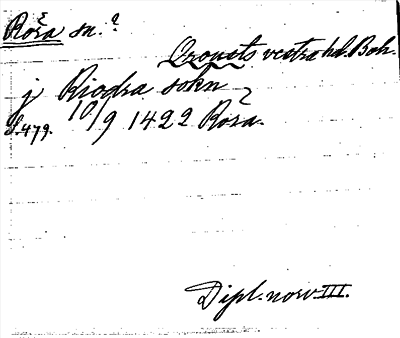 Röra sn.?
Orousts vestra hd. Boh.
j Riodra sokn
S. 479. 10/9 1422 Röra.
Dipl. norv III.